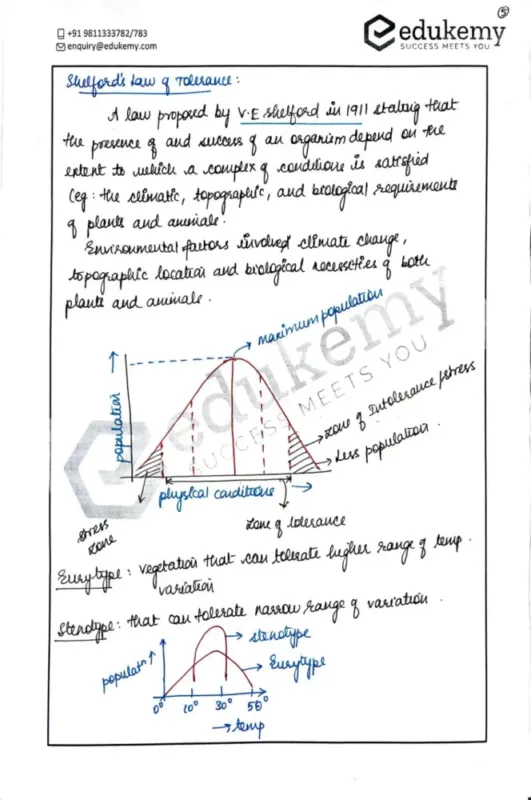 +91 9811333782/783
enquiry@edukemy.com
edukemy
SUCCESS MEETS YOU
5
Shelford's Law of Tolerance :
A law proposed by V.E Shelford in 1911 stating that
the presence of and success of an organism depend on the
extent to which a complex of conditions is satisfied
(eg: the climatic, topographic, and biological requirements
of plants and animals.
Environmental factors involved climate change,
topographic location and biological necessities of both
plants and animals.
maximum population
population
zone of Intolerance/stress
Less population.
physical conditions
stress
zone
zone of tolerance
edukemy
SUCCESS MEETS YOU
Eurytype : vegetation that can tolerate higher range of temp.
variation
Stenotype : that can tolerate narrow range of variation.
stenotype
Eurytype
populatn
0° 10° 30° 50°
temp